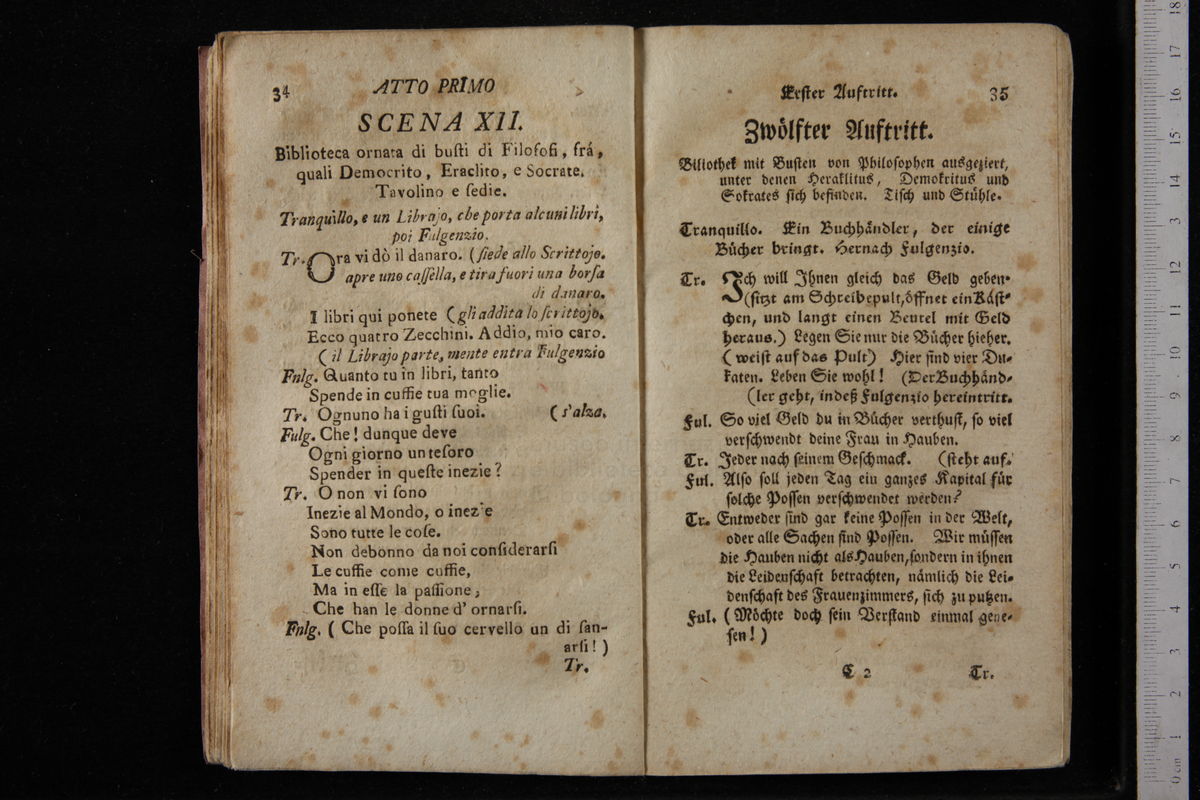 34 ATTO PRIMO
SCENA XII.
Biblioteca ornata di buſti di Filoſofi, frá,
quali Democrito, Eraclito, e Socrate.
Tavolino e ſedie.
Tranquillo, e un Librajo, che porta alcuni libri,
poi Fulgenzio.
Tr. Ora vi dò il danaro. (ſiede allo Scrittojo.
apre uno caſſella, e tira fuori una borſa
di danaro.
I libri qui ponete (gli addita lo ſcrittojo.
Ecco quatro Zecchini. Addio, mio caro.
(il Librajo parte, mente entra Fulgenzio
Fnlg. Quanto tu in libri, tanto
Spende in cuffie tua moglie.
Tr. Ognuno ha i guſti ſuoi. (s'alza.
Fulg. Che! dunque deve
Ogni giorno un teſoro
Spender in queſte inezie?
Tr. O non vi ſono
Inezie al Mondo, o inezie
Sono tutte le coſe.
Non debonno da noi conſiderarſi
Le cuffie come cuffie,
Ma in eſſe la paſſione,
Che han le donne d' ornarſi.
Fnlg. (Che poſſa il ſuo cervello un di ſan-
arſi!)
Tr.
Erſter Auftritt. 35
Zwölfter Auftritt.
Biliothek mit Buſten von Philoſophen ausgeziert,
unter denen Heraklitus, Demokritus und
Sokrates ſich befinden. Tiſch und Stühle.
Tranquillo. Ein Buchhändler, der einige
Bücher bringt. Hernach Fulgenzio.
Tr. Ich will Ihnen gleich das Geld geben.
(ſitzt am Schreibepult, öffnet ein Käſt-
chen, und langt einen Beutel mit Geld
heraus.) Legen Sie nur die Bücher hieher.
(weiſt auf das Pult) Hier ſind vier Du-
katen. Leben Sie wohl! (Der Buchhänd-
(ler geht, indeß Fulgenzio hereintritt.
Ful. So viel Geld du in Bücher verthuſt, ſo viel
verſchwendt deine Frau in Hauben.
Tr. Jeder nach ſeinem Geſchmack. (ſteht auf.
Ful. Alſo ſoll jeden Tag ein ganzes Kapital für
ſolche Poſſen verſchwendet werden?
Tr. Entweder ſind gar keine Poſſen in der Welt,
oder alle Sachen ſind Poſſen. Wir müſſen
die Hauben nicht als Hauben, ſondern in ihnen
die Leidenſchaft betrachten, nämlich die Lei-
denſchaft des Frauenzimmers, ſich zu putzen.
Ful. (Möchte doch ſein Verſtand einmal gene-
ſen!)
C 2 Tr.
0 cm 1 2 3 4 5 6 7 8 9 10 11 12 13 14 15 16 17 18